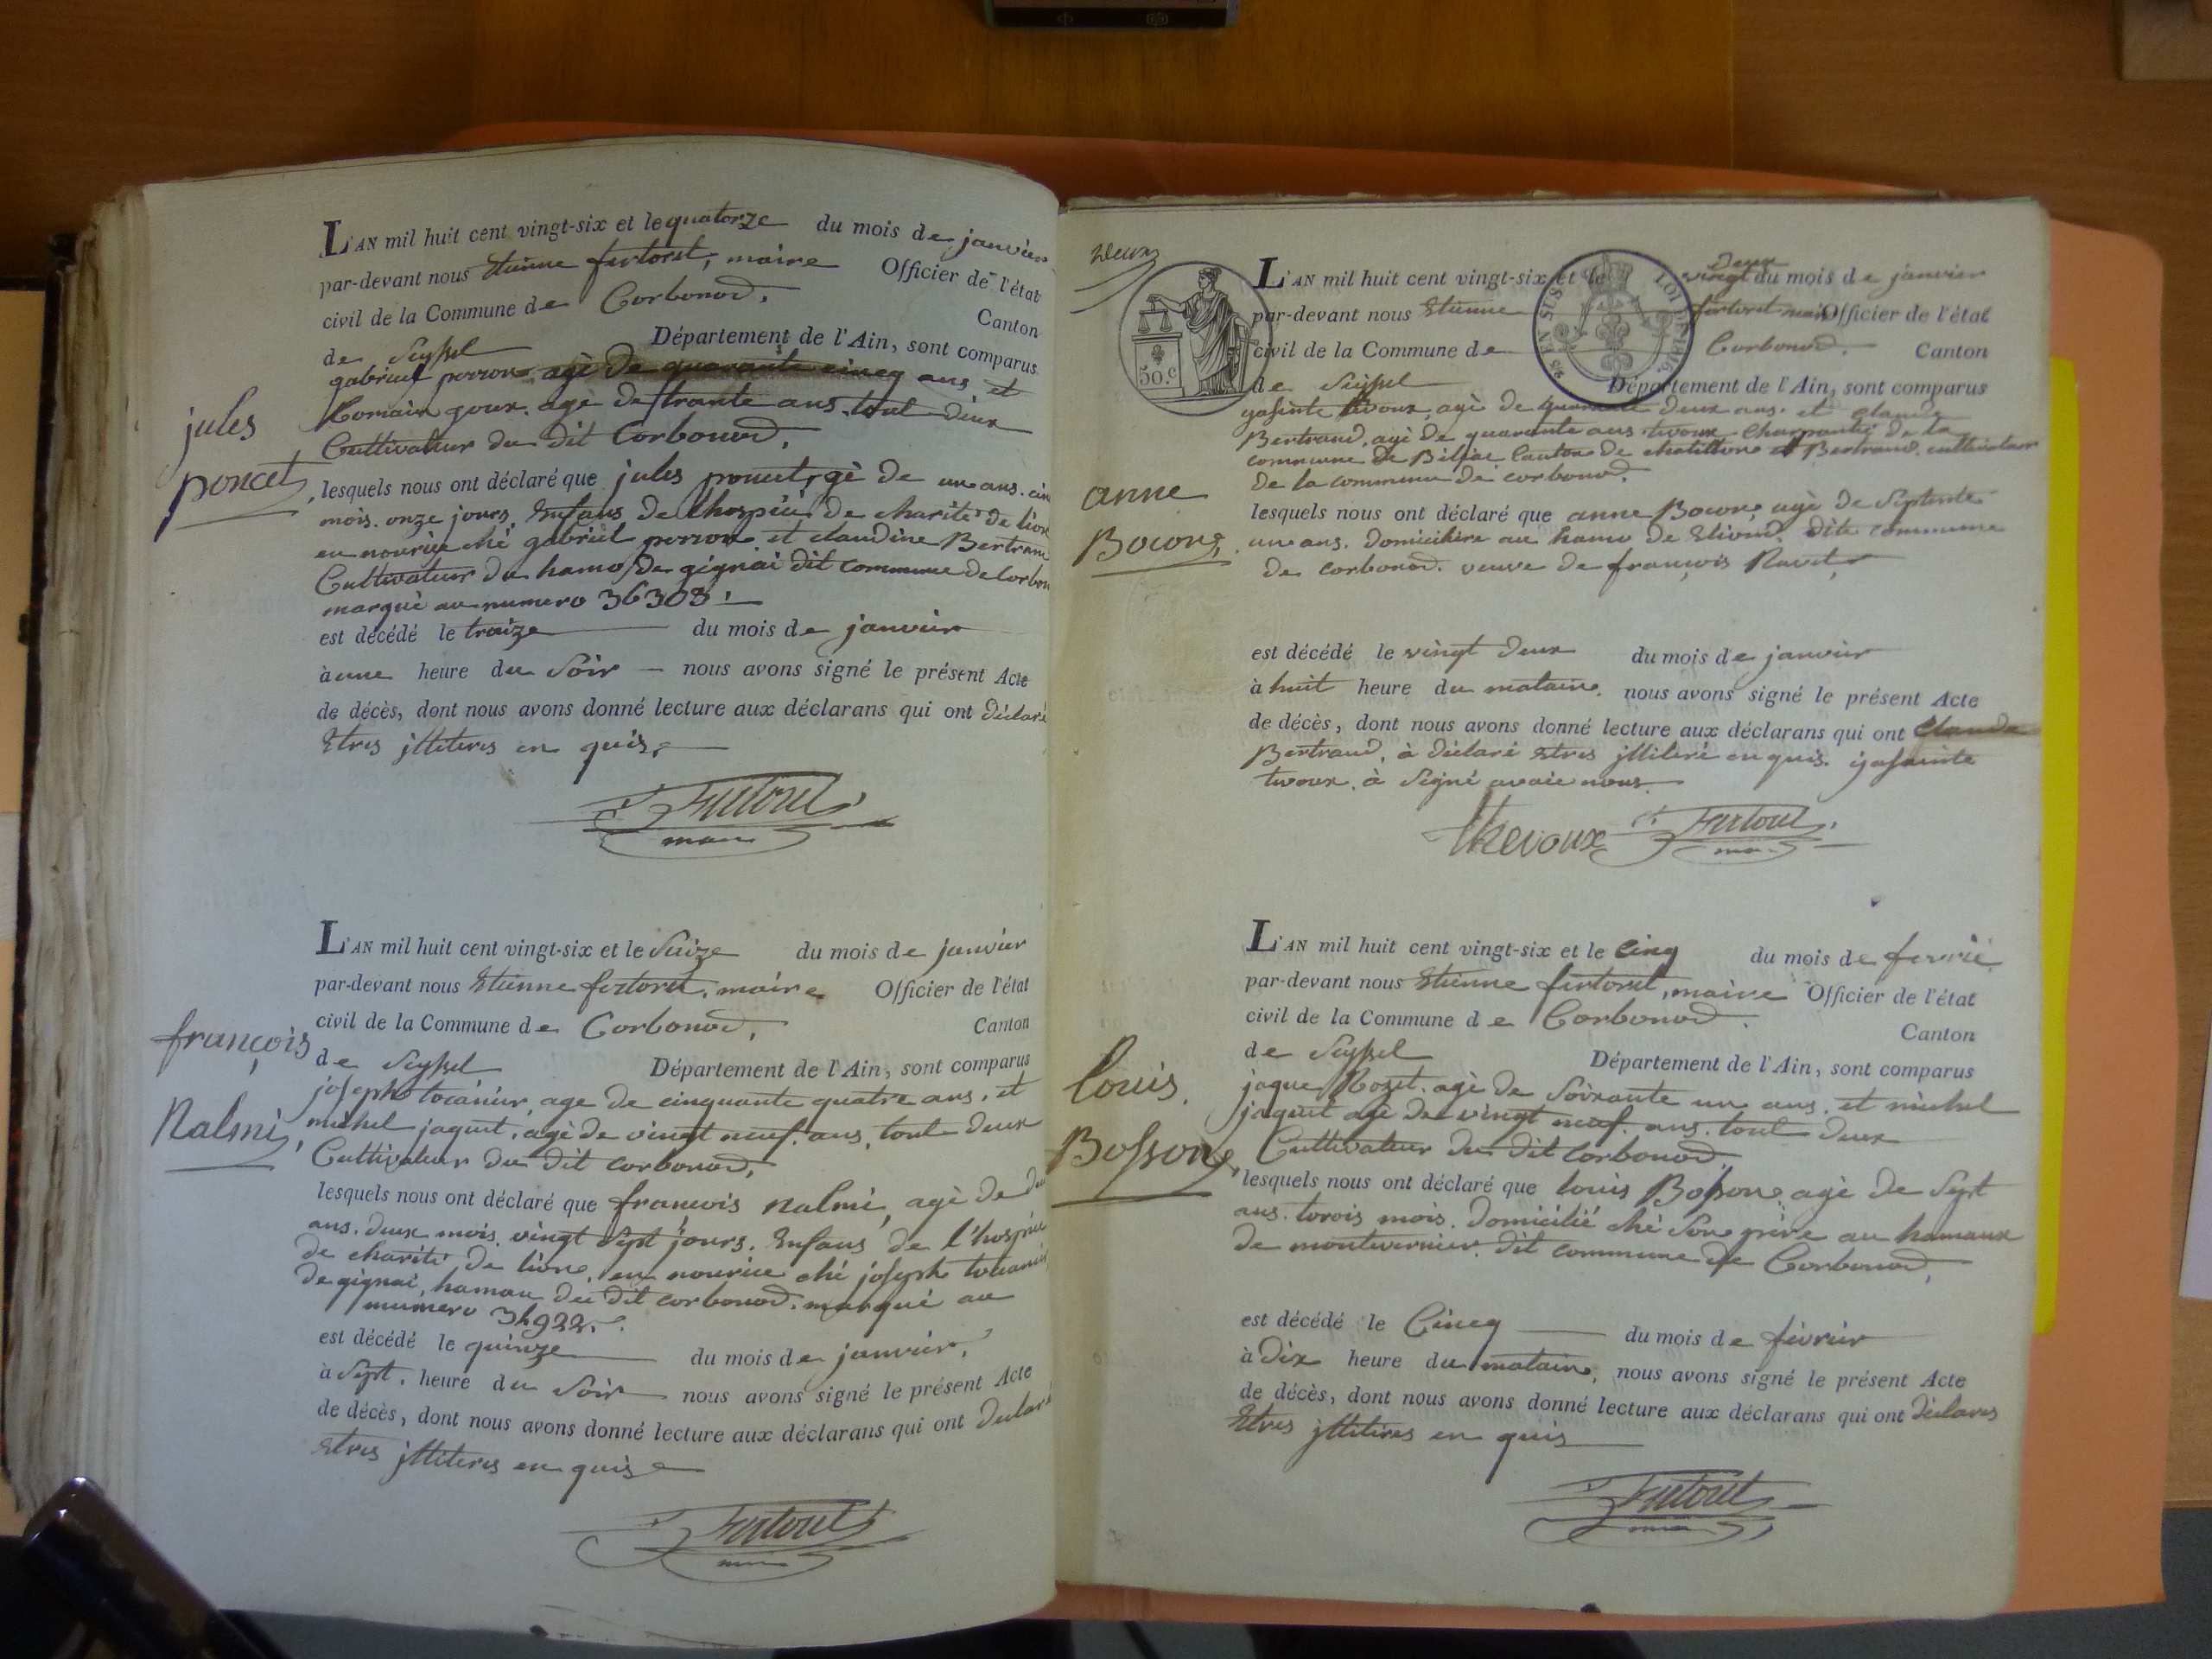 L'AN mil huit cent vingt-six et le quatorze du mois de janvier
par-devant nous Etienne fertoret, maire Officier de l'état
civil de la Commune de Corbonod, Canton
de Seyssel Département de l'Ain, sont comparus
gabriel perron agè de quarante cineq ans et
Romain goux, agè de trante ans, tout deux
Cultivateur du dit Corbonod,
jules
poncet,
lesquels nous ont déclaré que jules poncet, gè de un ans. cin
mois. onze jours. Enfans de l'hospice de charité de lion
en nourice ché gabriel perron et claudine Bertran
Cultivateur du hamo de gignai dit commune de Corbon
marquè au numero 36308
est décédé le traize du mois de janvier
à une heure du Soir nous avons signé le présent Acte
de décès, dont nous avons donné lecture aux déclarans qui ont déclaré
Etres jlliteres en quis
Fertoret
maire
L'AN mil huit cent vingt-six et le Saize du mois de janvier
par-devant nous Etienne fertoret, maire Officier de l'état
civil de la Commune de Corbonod, Canton
de Seyssel Département de l'Ain, sont comparus
françois
Nalmi,
joseph tocanier, age de cinquante quatre ans, et
michel jaquet, agè de vingt neuf ans, tout deux
Cultivateur du dit corbonod,
lesquels nous ont déclaré que francois nalmi, agè de
ans. deux mois. vingt Sept jours. Enfans de l'hospice
de charité de lion, en nourice ché joseph tocanier
de gignai, hamau du dit corbonod. marqué au
numero 34922.
est décédé le quinze du mois de janvier,
à Sept. heure du Soir nous avons signé le présent Acte
de décès, dont nous avons donné lecture aux déclarans qui ont declare
Etres jlliteres en quis
Fertoret
maire
Deux
50.c
EN SUS
LOI DE 1816
L'AN mil huit cent vingt-six et le vingt deux du mois de janvier
par-devant nous Etienne fertoret maire Officier de l'état
civil de la Commune de Corbonod. Canton
de Seyssel Département de l'Ain, sont comparus
yasinte tivoux, agè de quarante deux ans. et claude
Bertrand, agè de quarante ans tivoux Charpantié de la
commune de Canton de chatillon et Bertrand. cultivateur
de la commune de corbonod.
anne
Bocon,
lesquels nous ont déclaré que anne Bocon, agè de Septente
un ans. Domicilière au hamo de dite commune
de corbonod. veuve de françois Ravet,
est décédé le vingt deux du mois de janvier
à huit heure du mataine. nous avons signé le présent Acte
de décès, dont nous avons donné lecture aux déclarans qui ont Claude
Bertrand, à déclaré Etres jlliteré en quis. yasainte
tivoux. à Signé avaic nous.
thevoux Fertoret
L'AN mil huit cent vingt-six et le Cinq du mois de
par-devant nous Etienne fertoret, maire Officier de l'état
civil de la Commune de Corbonod. Canton
de Seyssel Département de l'Ain, sont comparus
louis.
Bosson,
jaque Rozet. agè de Soixante un ans. et michel
jaquet agè de vingt neuf ans. tout deux
Cultivateur du dit corbonod,
lesquels nous ont déclaré que louis Bosson agè de Sept
ans. torois mois. Domicilié ché Son père au hamaux
de montvernier dit commune de Corbonod,
est décédé le Cineq du mois de févrièr
à Dix heure du mataine, nous avons signé le présent Acte
de décès, dont nous avons donné lecture aux déclarans qui ont déclares
Etres jlliteres en quis
Fertoret